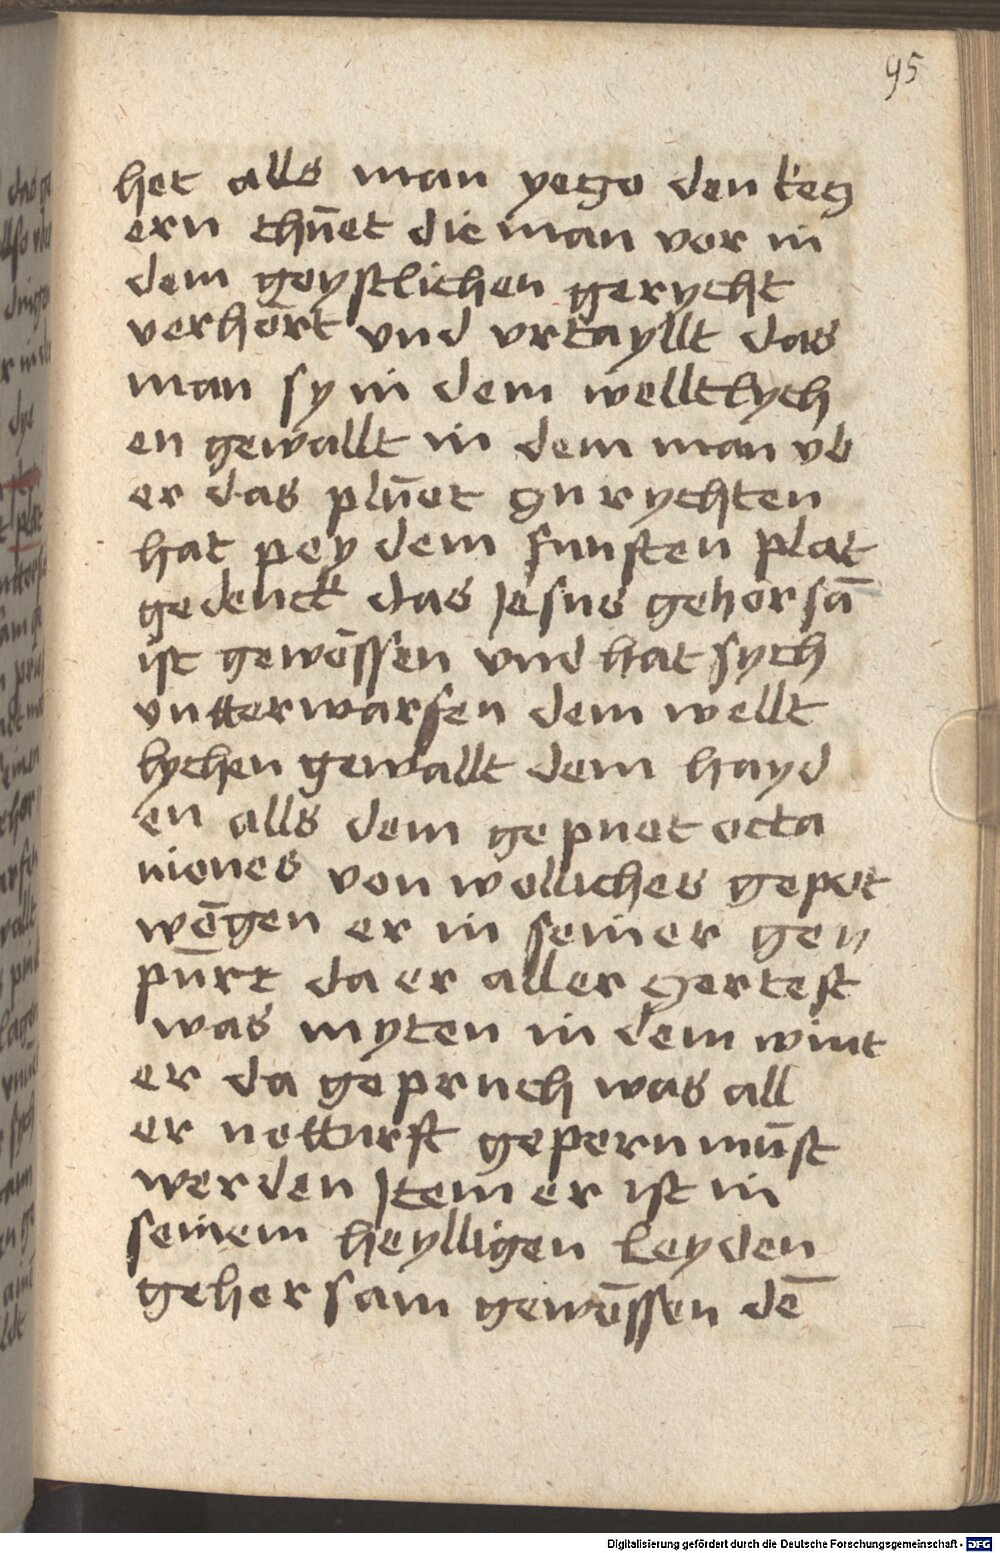 95
het alls man yeʒo den keʒ
ern thūet die man vor in
dem geystlichen gerycht
verhört vnd vrtayllt das
man sy in dem welltlych
en gewallt in dem man vb
er das plūet ʒu rychten
hat pey dem funften plat
gedenckt das Jesus gehorsā
ist gewēssen vnd hat sych
vntterwarfen dem wellt
lychen gewallt dem hayd
en alls dem gepuet octa
niones von wolliches gepot
wēgen er in seiner gen
pūrt da er aller ʒertest
was myten in dem wint
er da gepruch was all
er notturft gepern mūst
werden Jtem er ist in
seinem heylligen leyden
gehersam gewēssen dē
Digitalisierung gefördert durch die Deutsche Forschungsgemeinschaft - DFG